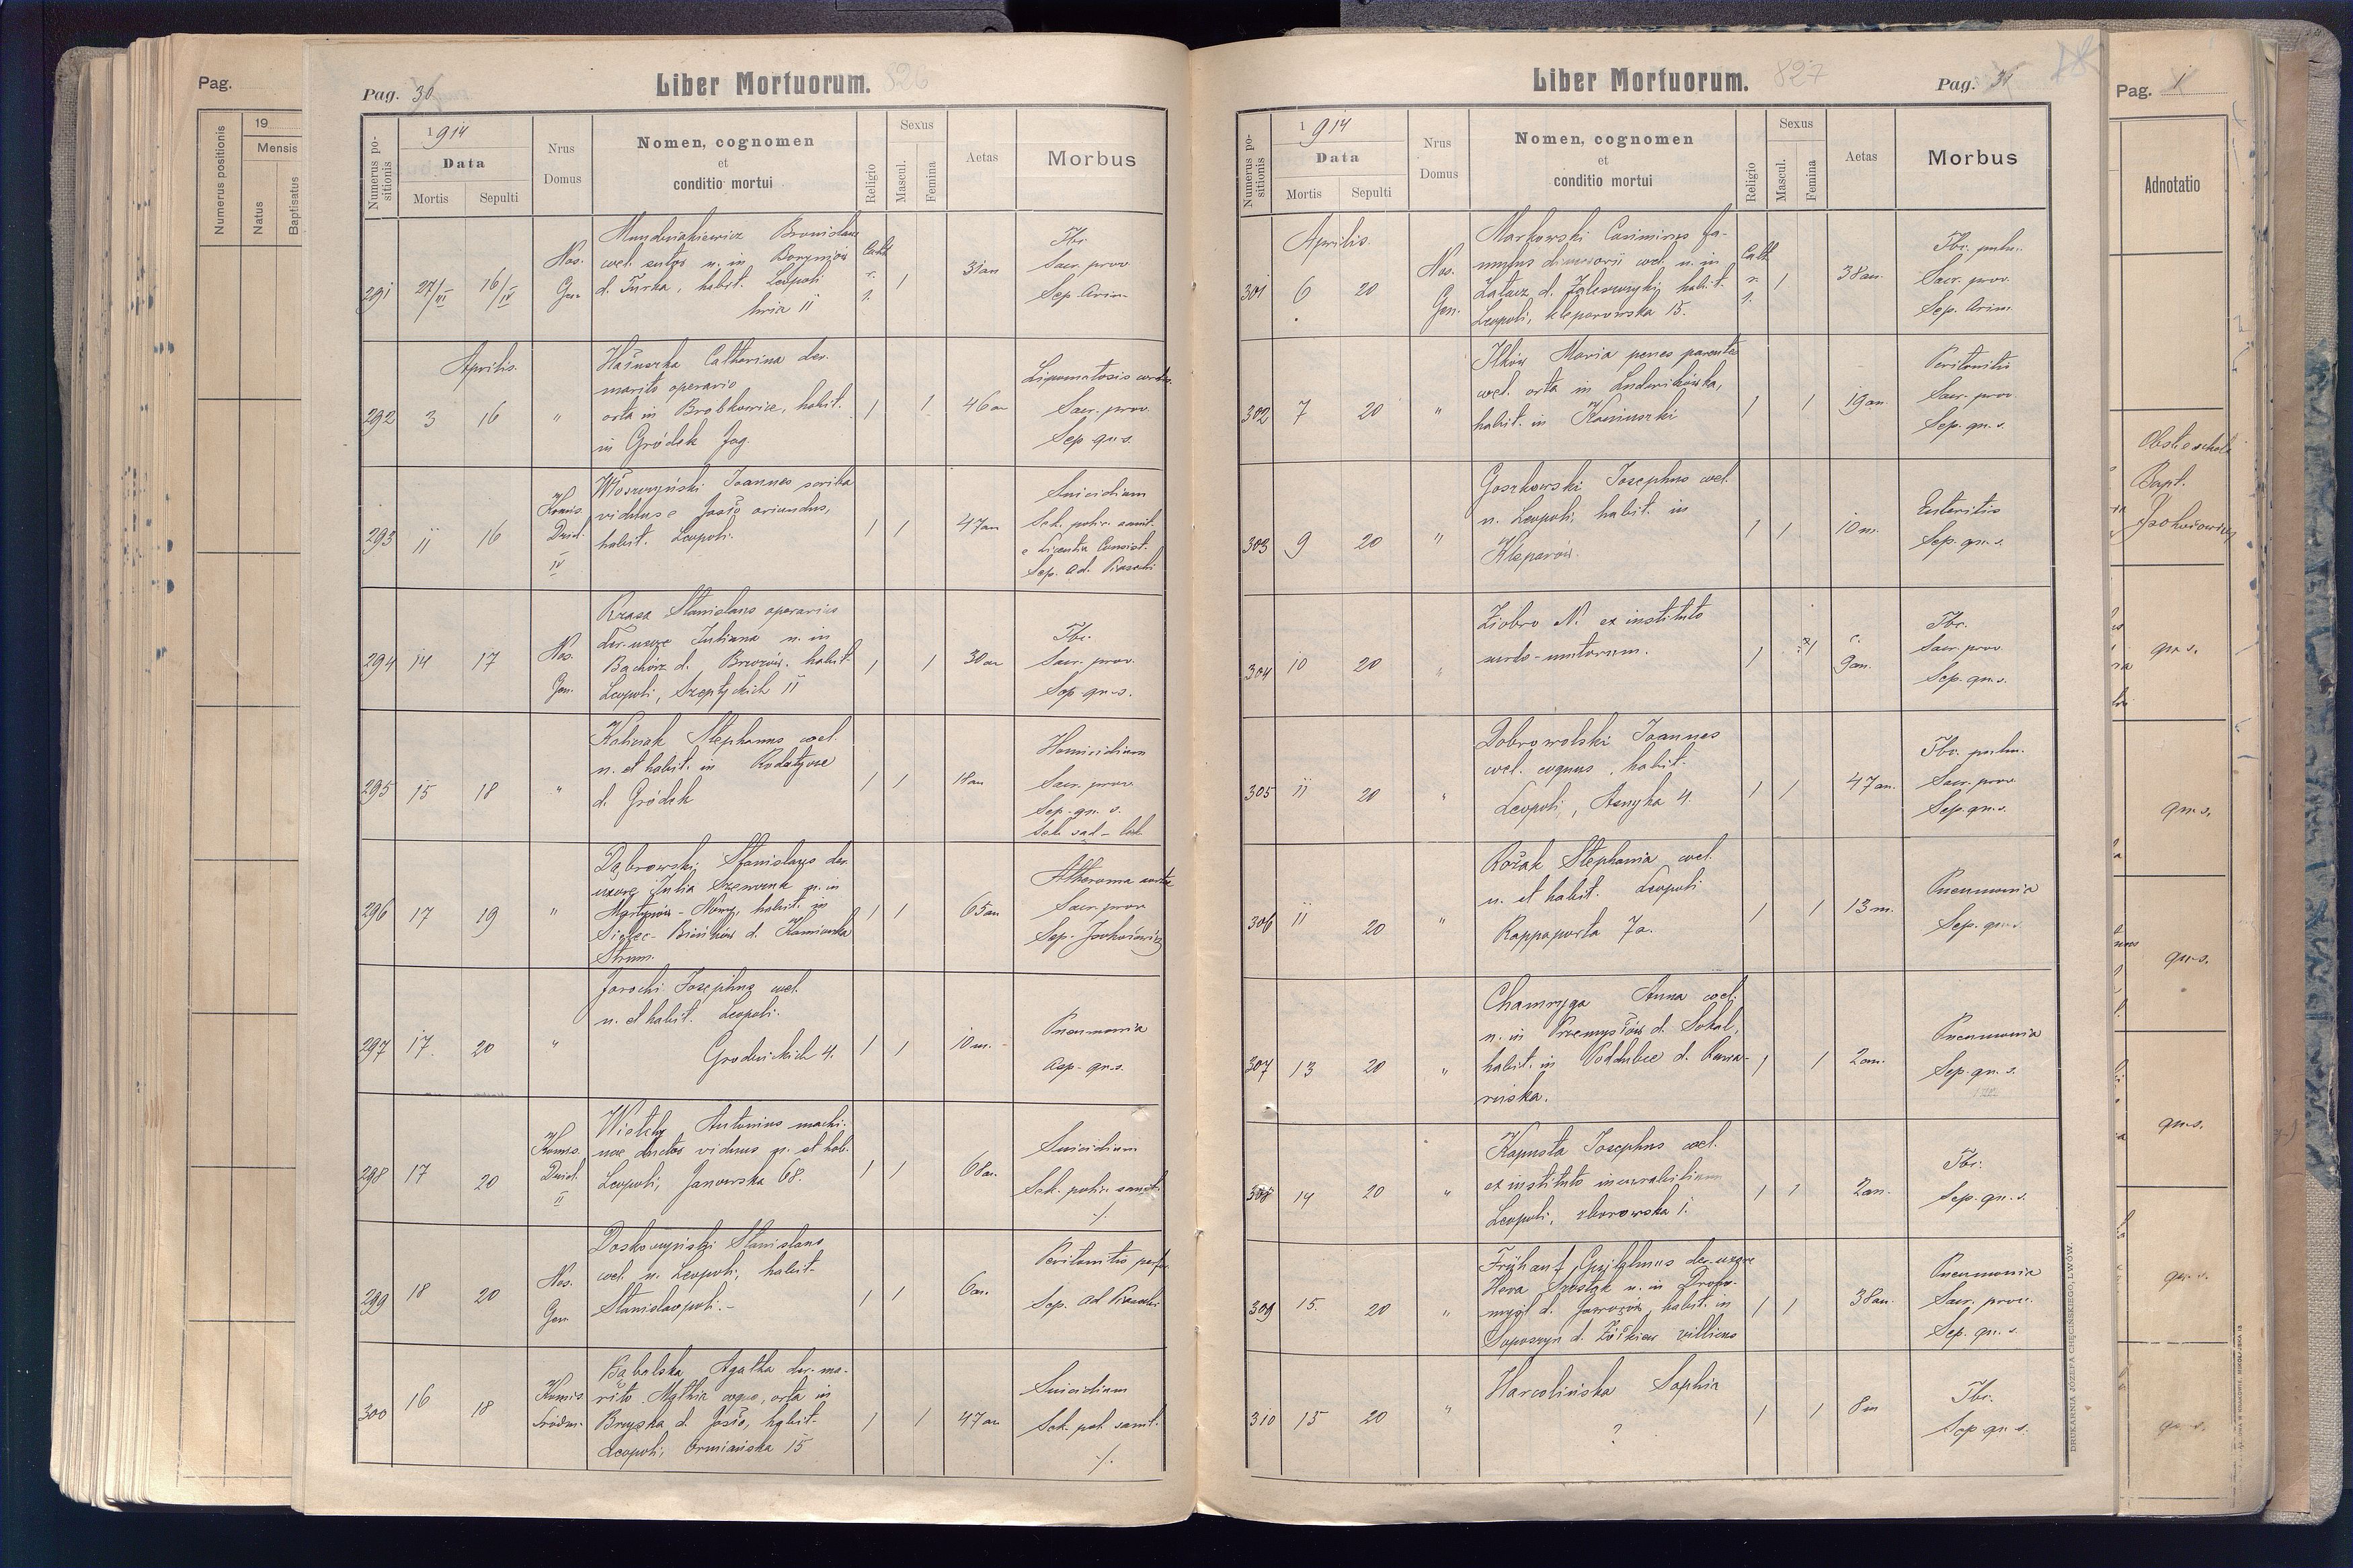 Pag.
Numerus positionis
19
Mensis
Natus
Baptisatus
Pag. 30
Liber Mortuorum. 826
Numerus po-
sitionis
1914
Data
Mortis
Sepulti
Nrus
Domus
Nomen, cognomen
et
conditio mortui
Religio
Sexus
Mascul.
Femina
Aetas
Morbus
291
27/III
16/IV
Nos.
Gen.
Bronislaus
coel. n. in Borynia
d. Turka, habit. Leopoli
11
Cath
r.
1.
1
31 an
Tbc.
Sacr. prov.
Sep. Arim.
Aprilis
292
3
16
"
Catharina der.
marito operario
orta in habit.
in Gródek Jag.
1
1
46 an
Lipomatosis cordis
Sacr. prov.
Sep. qu. s.
293
11
16
Komis.
Dziel.
IV
Włoszczyński Joannes scriba
viduus e Jasło oriundus,
habit. Leopoli.
1
1
47 an
Suicidium
Sek. polic. sanit.
e Licentia Consist.
Sep. ad. Piasecki
294
14
17
Nos.
Gen.
Rzasa Stanislaus operarius
der. uxore Juliana n. in
Bachórz d. Brzozów. habit.
Leopoli, Szeptyckich 11
1
1
30 an
Tbc.
Sacr. prov.
Sep. qu. s.
295
15
18
"
Stephanus coel.
n. et habit. in Rodatycze
d. Gródek
1
1
18 an
Homicidium
Sacr. prov.
Sep. qu. s.
Sek. sąd. - lek.
296
17
19
"
Dąbrowski Stanislaus der.
uxore Julia n. in
Martynów - Nowy, habit. in
Sielec - Bieńków d. Kamionka
Strum.
1
1
65 an
Atheroma aortae
Sacr. prov.
Sep.
297
17.
20
"
Jarochi Josephus coel.
n. et habit. Leopoli.
Grodzickich 4.
1
1
10 m.
Pneumonia
Sep. qu. s.
298
17
20
Komis.
Dziel.
II
Antonius machi-
nae ductor viduus n. et hab.
Leopoli, Janowska 68.
1
1
68 an.
Suicidium
Sek. polic. sanit.
./.
299
18
20
Nos.
Gen
Stanislaus
coel. n. Leopoli, habit.
Stanislaopoli. -
1
1
6 an.
Peritonitis perfor.
Sep. ad Piasecki
300
16
18
Komis.
Śródm.
Bąbelska Agatha der. ma-
rito Mathia orta in
Brzyska d. Jasło, habit.
Leopoli, Ormiańska 15
1
1
47 an
Suicidium
Sek. pol. sanit.
./.
Liber Mortuorum. 827
Pag. 31
Numerus po-
sitionis
1914
Data
Mortis
Sepulti
Nrus
Domus
Nomen, cognomen
et
conditio mortui
Religio
Sexus
Mascul.
Femina
Aetas
Morbus
Aprilis
301
6
20
Nos.
Gen.
Markowski Casimirus fa-
mulus coel. n. in
Latacz d. Zaleszczyki habit.
Leopoli, Kleparowska 15.
Cath
r.
1.
1
38 an.
Tbc. pulm.
Sacr. prov.
Sep. Arim.
302
7
20
"
Ilków Maria penes parentes
coel. orta in Ludwikówka,
habit. in
1
1
19 an.
Peritonitis
Sacr. prov.
Sep. qu. s.
303
9
20
"
Goszkowski Josephus coel.
n. Leopoli, habit. in
Kleparów.
1
1
10 m.
Enteritis
Sep. qu. s.
304
10
20
"
Ziobro N. ex instituto
surdo-mutorum.
1
1
c.
9 an.
Tbc.
Sacr. prov.
Sep. qu. s.
305
11
20
"
Dobrowolski Joannes
coel. coquus, habit.
Leopoli, Asnyka 4.
1
1
47 an.
Tbc. pulm.
Sacr. prov.
Sep. qu. s.
306
11
20
"
Rożak Stephania coel.
n. et habit. Leopoli
Rappaporta 7a.
1
1
13 m.
Pneumonia
Sep. qu. s.
307
13
20
"
Chamryga Anna coel.
n. in Przemysłów d. Sokal,
habit. in Poddubce d. Rawa-
ruska.
1
1
2 an.
Pneumonia
Sep. qu. s.
308
14
20
"
Kapusta Josephus coel.
ex instituto incurabilium
Leopoli, zborowska 1.
1
1
2 an.
Tbc.
Sep. qu. s.
309
15.
20
"
Frühauf der. uxore
Szostak n. in Droho-
myśl d. Jaworów, habit. in
Soposzyn d. Żółkiew villicus
1
1
38 an.
Pneumonia
Sacr. prov.
Sep. qu. s.
310
15
20
"
Harcolińska Sophia
?
1
1
8 m
Tbc.
Sep. qu. s.
DRUKARNIA JÓZEFA CHĘCIŃSKIEGO, LWÓW.
Pag. 1
Adnotatio
Bapt.
qu. s.
qu. s.
qu. s.
qu. s.
qu. s.
qu. s.